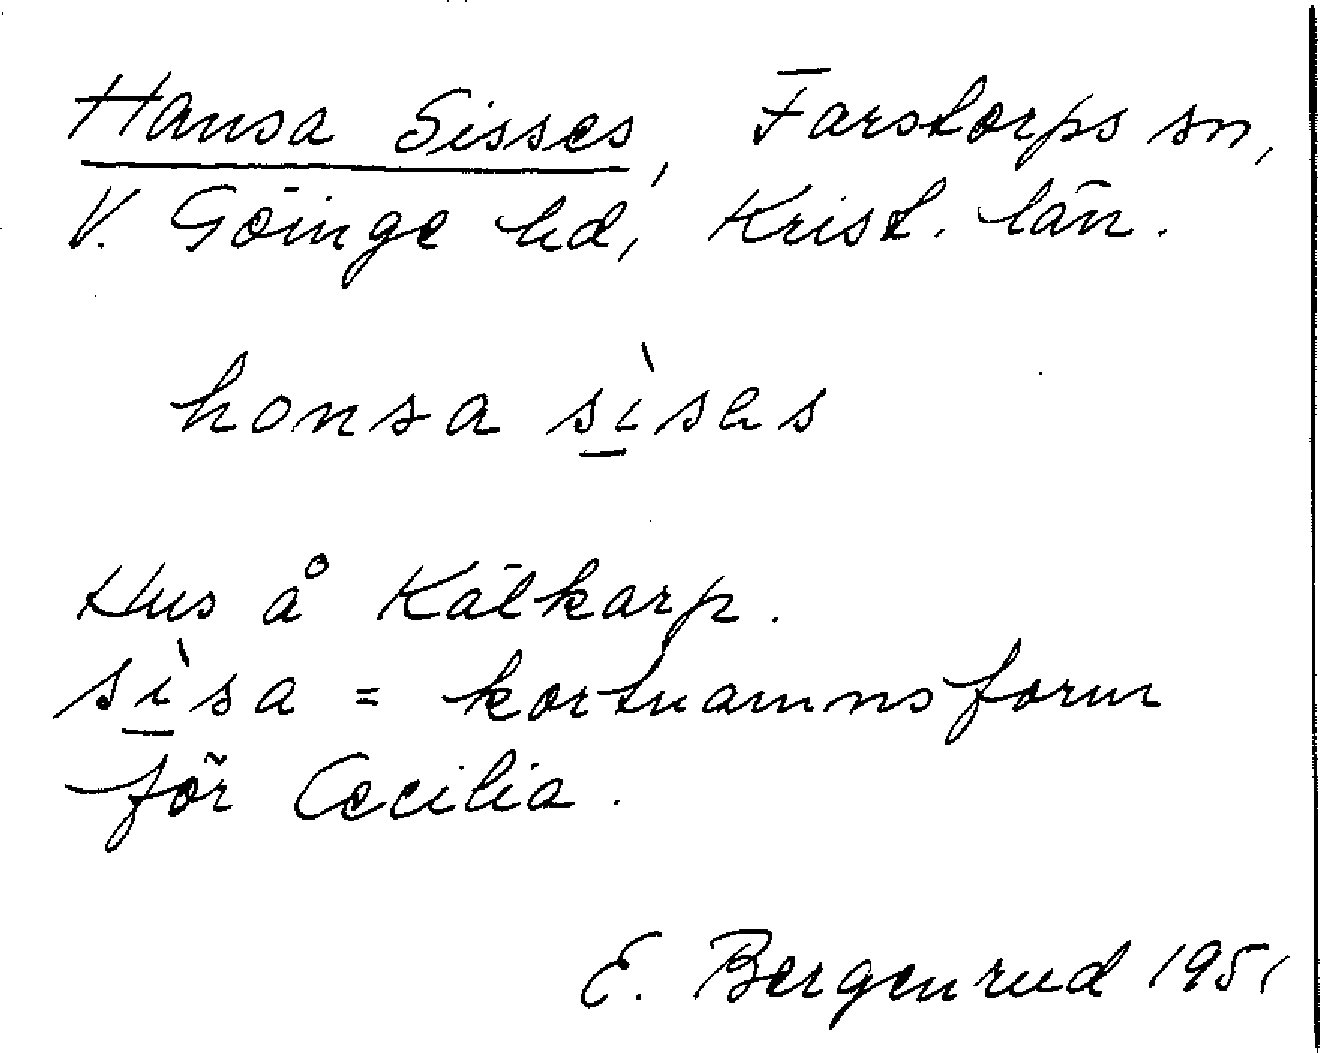 Hansa Sisses, Farstorps sn,
V. Göinge hd, Krist. län.
honsa sìsas
Hus å Kälkarp.
sìsa = kortnamnsform
för Cecilia.
E. Bergenrud 1951